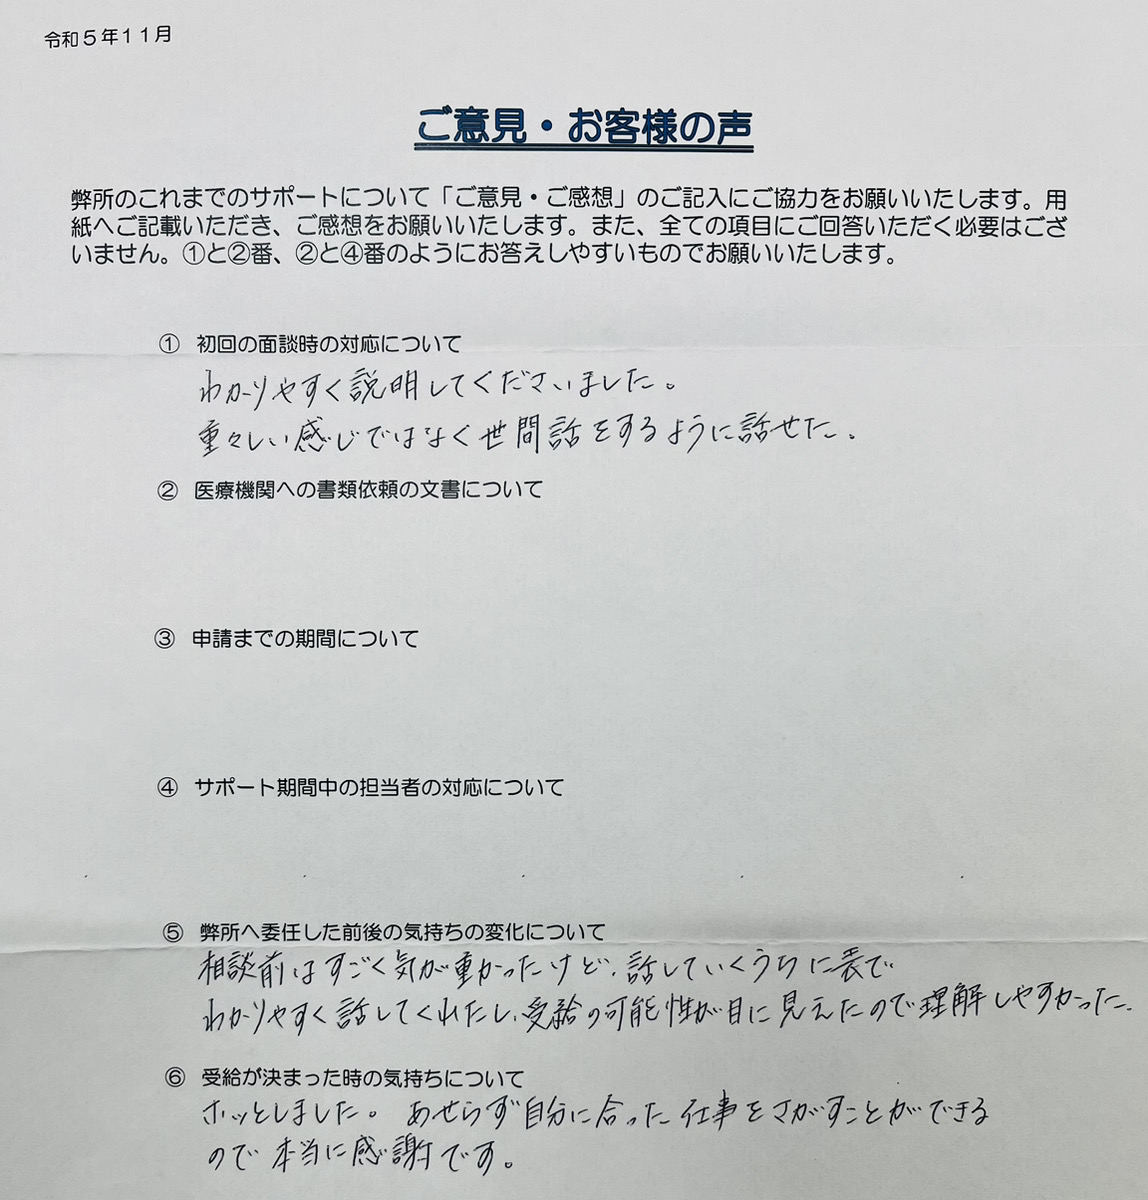 令和５年１１月
ご意見・お客様の声
弊所のこれまでのサポートについて「ご意見・ご感想」のご記入にご協力をお願いいたします。用
紙へご記載いただき、ご感想をお願いいたします。また、全ての項目にご回答いただく必要はござ
いません。①と②番、②と④番のようにお答えしやすいものでお願いいたします。
① 初回の面談時の対応について
わかりやすく説明してくださいました。
重々しい感じではなく世間話をするように話せた。
② 医療機関への書類依頼の文書について
③ 申請までの期間について
④ サポート期間中の担当者の対応について
⑤ 弊所へ委任した前後の気持ちの変化について
相談前はすごく気が重かったけど、話していくうちに表で
わかりやすく話してくれたし、受給の可能性が目に見えたので理解しやすかった。
⑥ 受給が決まった時の気持ちについて
ホッとしました。あせらず自分に合った仕事をさがすことができる
ので本当に感謝です。